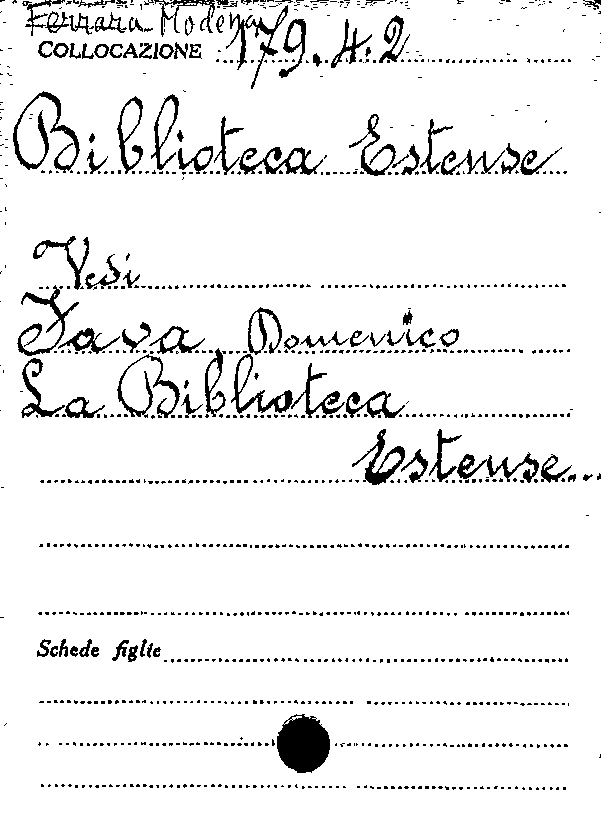 Ferrara Modena
COLLOCAZIONE 179.4.2
Biblioteca Estense
Vedi
Fava, Domenico
La Biblioteca
Estense...
Schede figlie